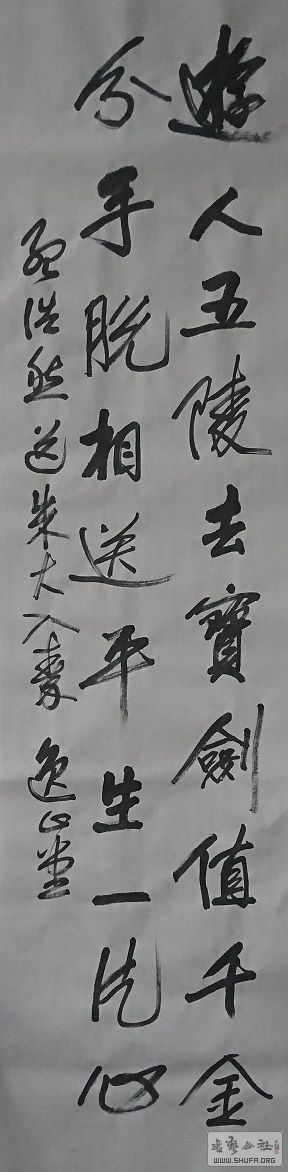 遊人五陵去寶劍值千金
分手脫相送平生一片心
孟浩然送朱大入秦 逸心堂
书艺公社
WWW.SHUFA.ORG